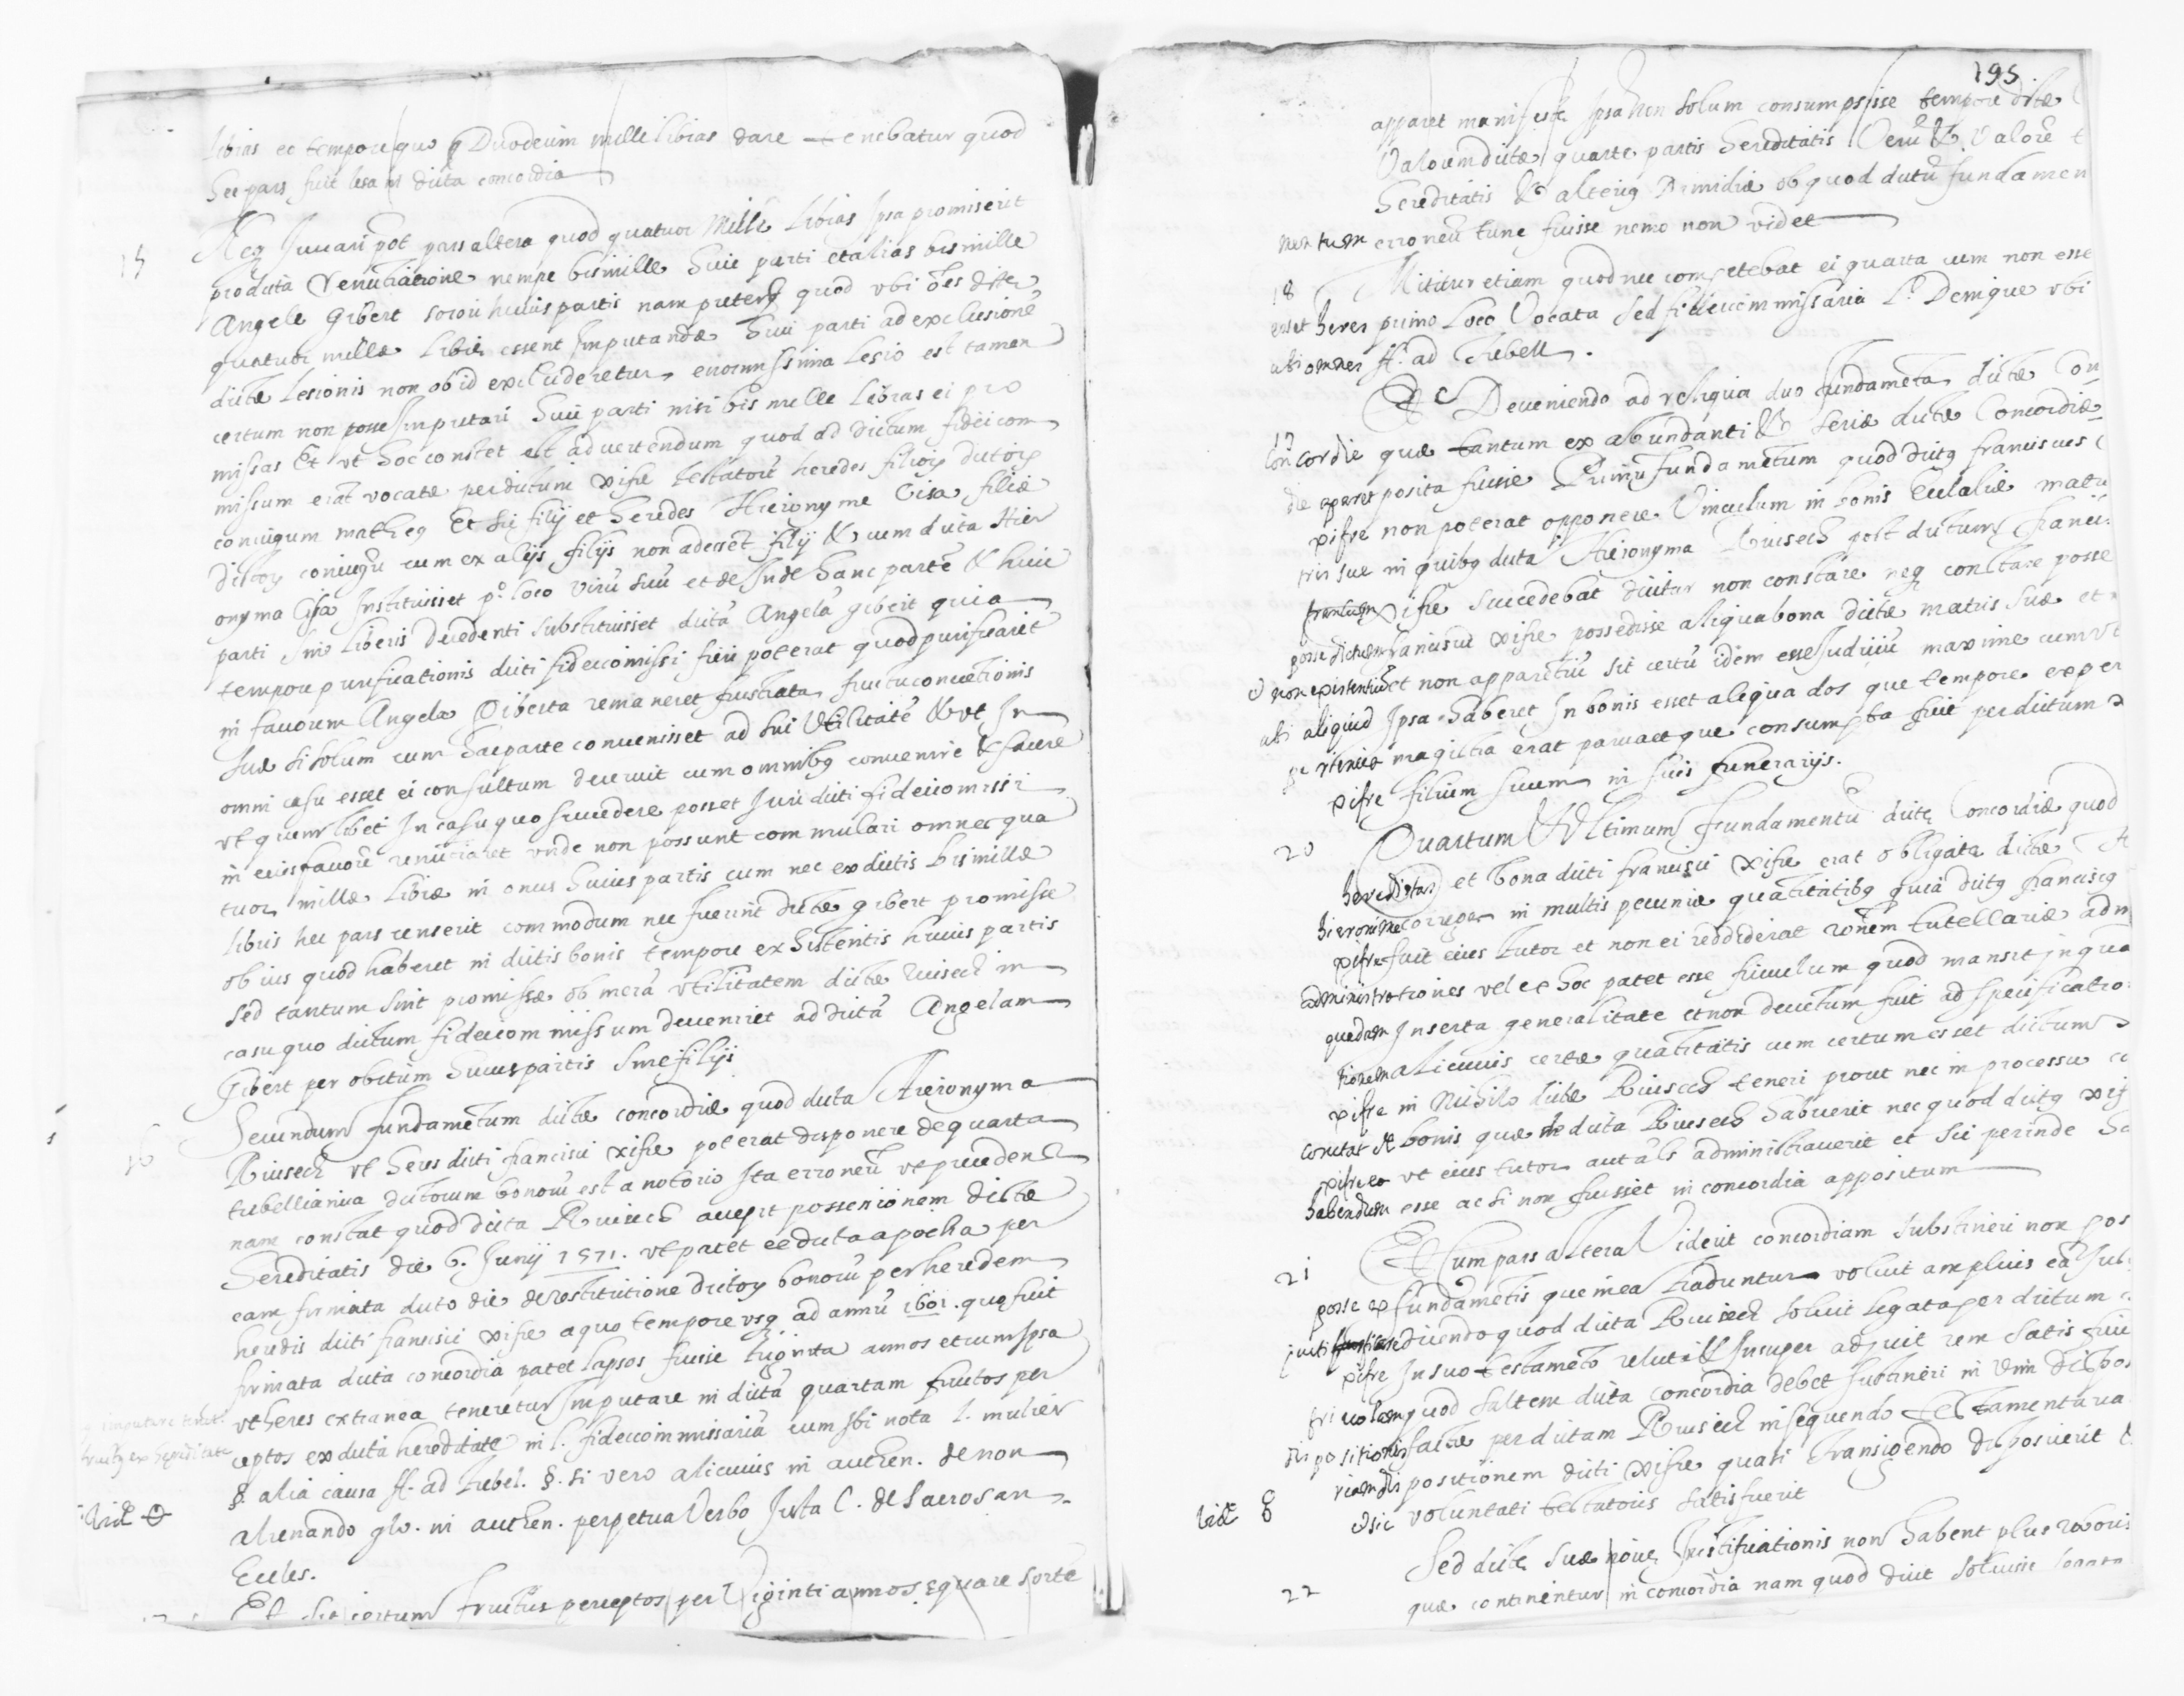 libras ec tempore quo Duodecim mille libras dare tenebatur quod
hec pars fuit lesa in dicta concordia
15 Neq Juuari pot pars altera quod quatuor Mille Libras Ipsa promiserit
prodicta renuntiatione nempe bismille huic parti et alias bis mille
Angele Gibert sorori huius partis nam preterq quod vbi oes dicte
quatuor mille Libre essent Imputande huic parti ad exclusione
dicte Lesionis non ob id excluderetur enormissima Lesio est tamen
certum non posse Imputari huic parti nisi bis mille Libras ei pro
missas Et vt hoc constet est aduertendum quod ad dictum fideicom
missum erat vocate perdictum xifre testatore heredes filior dictor
coniugum matheq Et sic filij et heredes Hieronyme Cisa filie
dictor coniugu cum ex alijs filijs non adessent filij & cum dicta Hier
onyma Cisa Instituisset po loco viru suu et de Inde hanc parte & huic
parti sine Liberis decedenti substituisset dicta Angela gibert quia
tempore purificationis dicti fideicomissi fieri poterat quod purificaret
in fauorem Angela Giberta remaneret frustrata fructu conuetionis
sue si solum cum hac parte conuenisset ad sui vtilitate & vt In
omni casu esset ei consultum decreuit cum omnibq conuenire & facere
vt quemlibet In casu quo succedere posset Juri dicti fideicomissi
in eius fauore renuciaret vnde non possunt commulari omnes qua
tuor mille Libre in onus huius partis cum nec ex dictis bis mille
libris hec pars censerit commodum nec fuerint dicte gibert promisse
ob ius quod haberet in dictis bonis tempore existentis huius partis
sed tantum sint promisse ob mera vtilitatem dicte Ruisech in
casu quo dictum fideicommissum deueniret ad dicta Angelam
Gibert per obitum huius partis sine filijs
16 Secundum fundametum dicte concordie quod dicta Hieronyma
Ruisech vt heres dicti francisci xifre poterat disponere de quarta
trebellianica dictorum bonoru est a notorio Ita erroneu vt
nam constat quod dicta Ruisech accepit possessionem dicte
hereditatis die 6. Junij 1571. vt patet ex dicta apocha per
eam firmata dicto die de restitutione dictor bonoru per heredem
heredis dicti francisci xifre a quo tempore vsq ad annu 1601. quo fuit
firmata dicta concordia patet lapsos fuisse triginta annos et cum Ipsa
vt heres extranea teneretur Imputare in dicta quartam fructos per
ceptos ex dicta hereditate in l. fideicommissaria cum sbi nota l. mulier
§. alia causa ff. ad trebel. §. si vero alicuius in authen. de non
alienando glo. in authen. perpetua Verbo Justa C. de Sacrosan.
Eccles.
Et sic certum fructus perceptos per Viginti annos equare sorte
q imputare tenet
fructq ex hereditate
Vide
195.
apparet manifeste Ipsa non solum consumpsisse tempore dicte
Valorem dicte quarte partis hereditatis Veru & Valore
hereditatis & alteriq Dimidie ob quod dictu fundamen
mentum erroneu tunc fuisse nemo non videt
18 Nititur etiam quod nec competebat ei quarta cum non esse
esset heres primo Loco Vocata sed fideicommissaria l. Denique vbi
ubi omnes ff. ad Trebell.
19 Et Deueniendo ad reliqua duo fundameta dicte Con
concordie que tantum ex abundanti & serie dicte Concordie
die apparet posita fuisse Primu fundametum quod dictq franciscus
xifre non poterat opponere Vinculum in bonis Eulalie matr
tris sue in quibq dicta Hieronyma Ruisech post dictum franci
franciscum xifre succedebat dicitur non constare neq constare posse
posse dictum franciscu xifre possedisse aliqua bona dicte matris sue et
non existentiu et non apparetiu sit certu idem esse Judiciu maxime cum vt
ubi aliquid Ipsa haberet In bonis esset aliqua dos que tempore exper
magistra erat parua et que consumpta fuit per dictum
xifre filium suum in suis funerarijs.
20 Quartum & Vltimum fundamentu dicte Concordie quod
hereditas et bona dicti francisci xifre erat obligata dicte
hieronime corriger in multis pecunie quatitatibq quia dictq franciscq
xifre fuit eius tutor et non ei reddiderat ronem tutellarie adm
administrationes vel ex hoc patet esse friuolum quod mansit In qua
quedam Inserta generalitate et non deuetum fuit ad specificatio
tionem alicuius certe quatitatis cum certum esset dictum
xifre in Nihilo dicte Ruisech teneri prout nec in processu co
constat de bonis que dicta Ruisech habuerit nec quod dictq xif
xifre vt eius tutor aut als administrauerit et sic perinde ha
habendum esse ac si non fuisset in concordia appositum
21 Et Cum pars altera Viderit concordiam substineri non pos
posse ex fundametis que in ea traduntur voluit amplius ea Jus
dicendo quod dicta Ruisech soluit legata per dictum
xifre In suo testameto relicta & Insuper adjicit rem satis friu
friuolam quod saltem dicta concordia debet substineri in vim dispos
dispositionis facte per dictam Ruisech insequendo testamentaria
riam dispositionem dicti xifre quasi transigendo disposuerit &
& sic voluntati testatoris satisfuerit
Vide
22 Sed dicte sue noue Justificationis non habent plus roboris
que continentur in concordia nam quod dicit soluisse